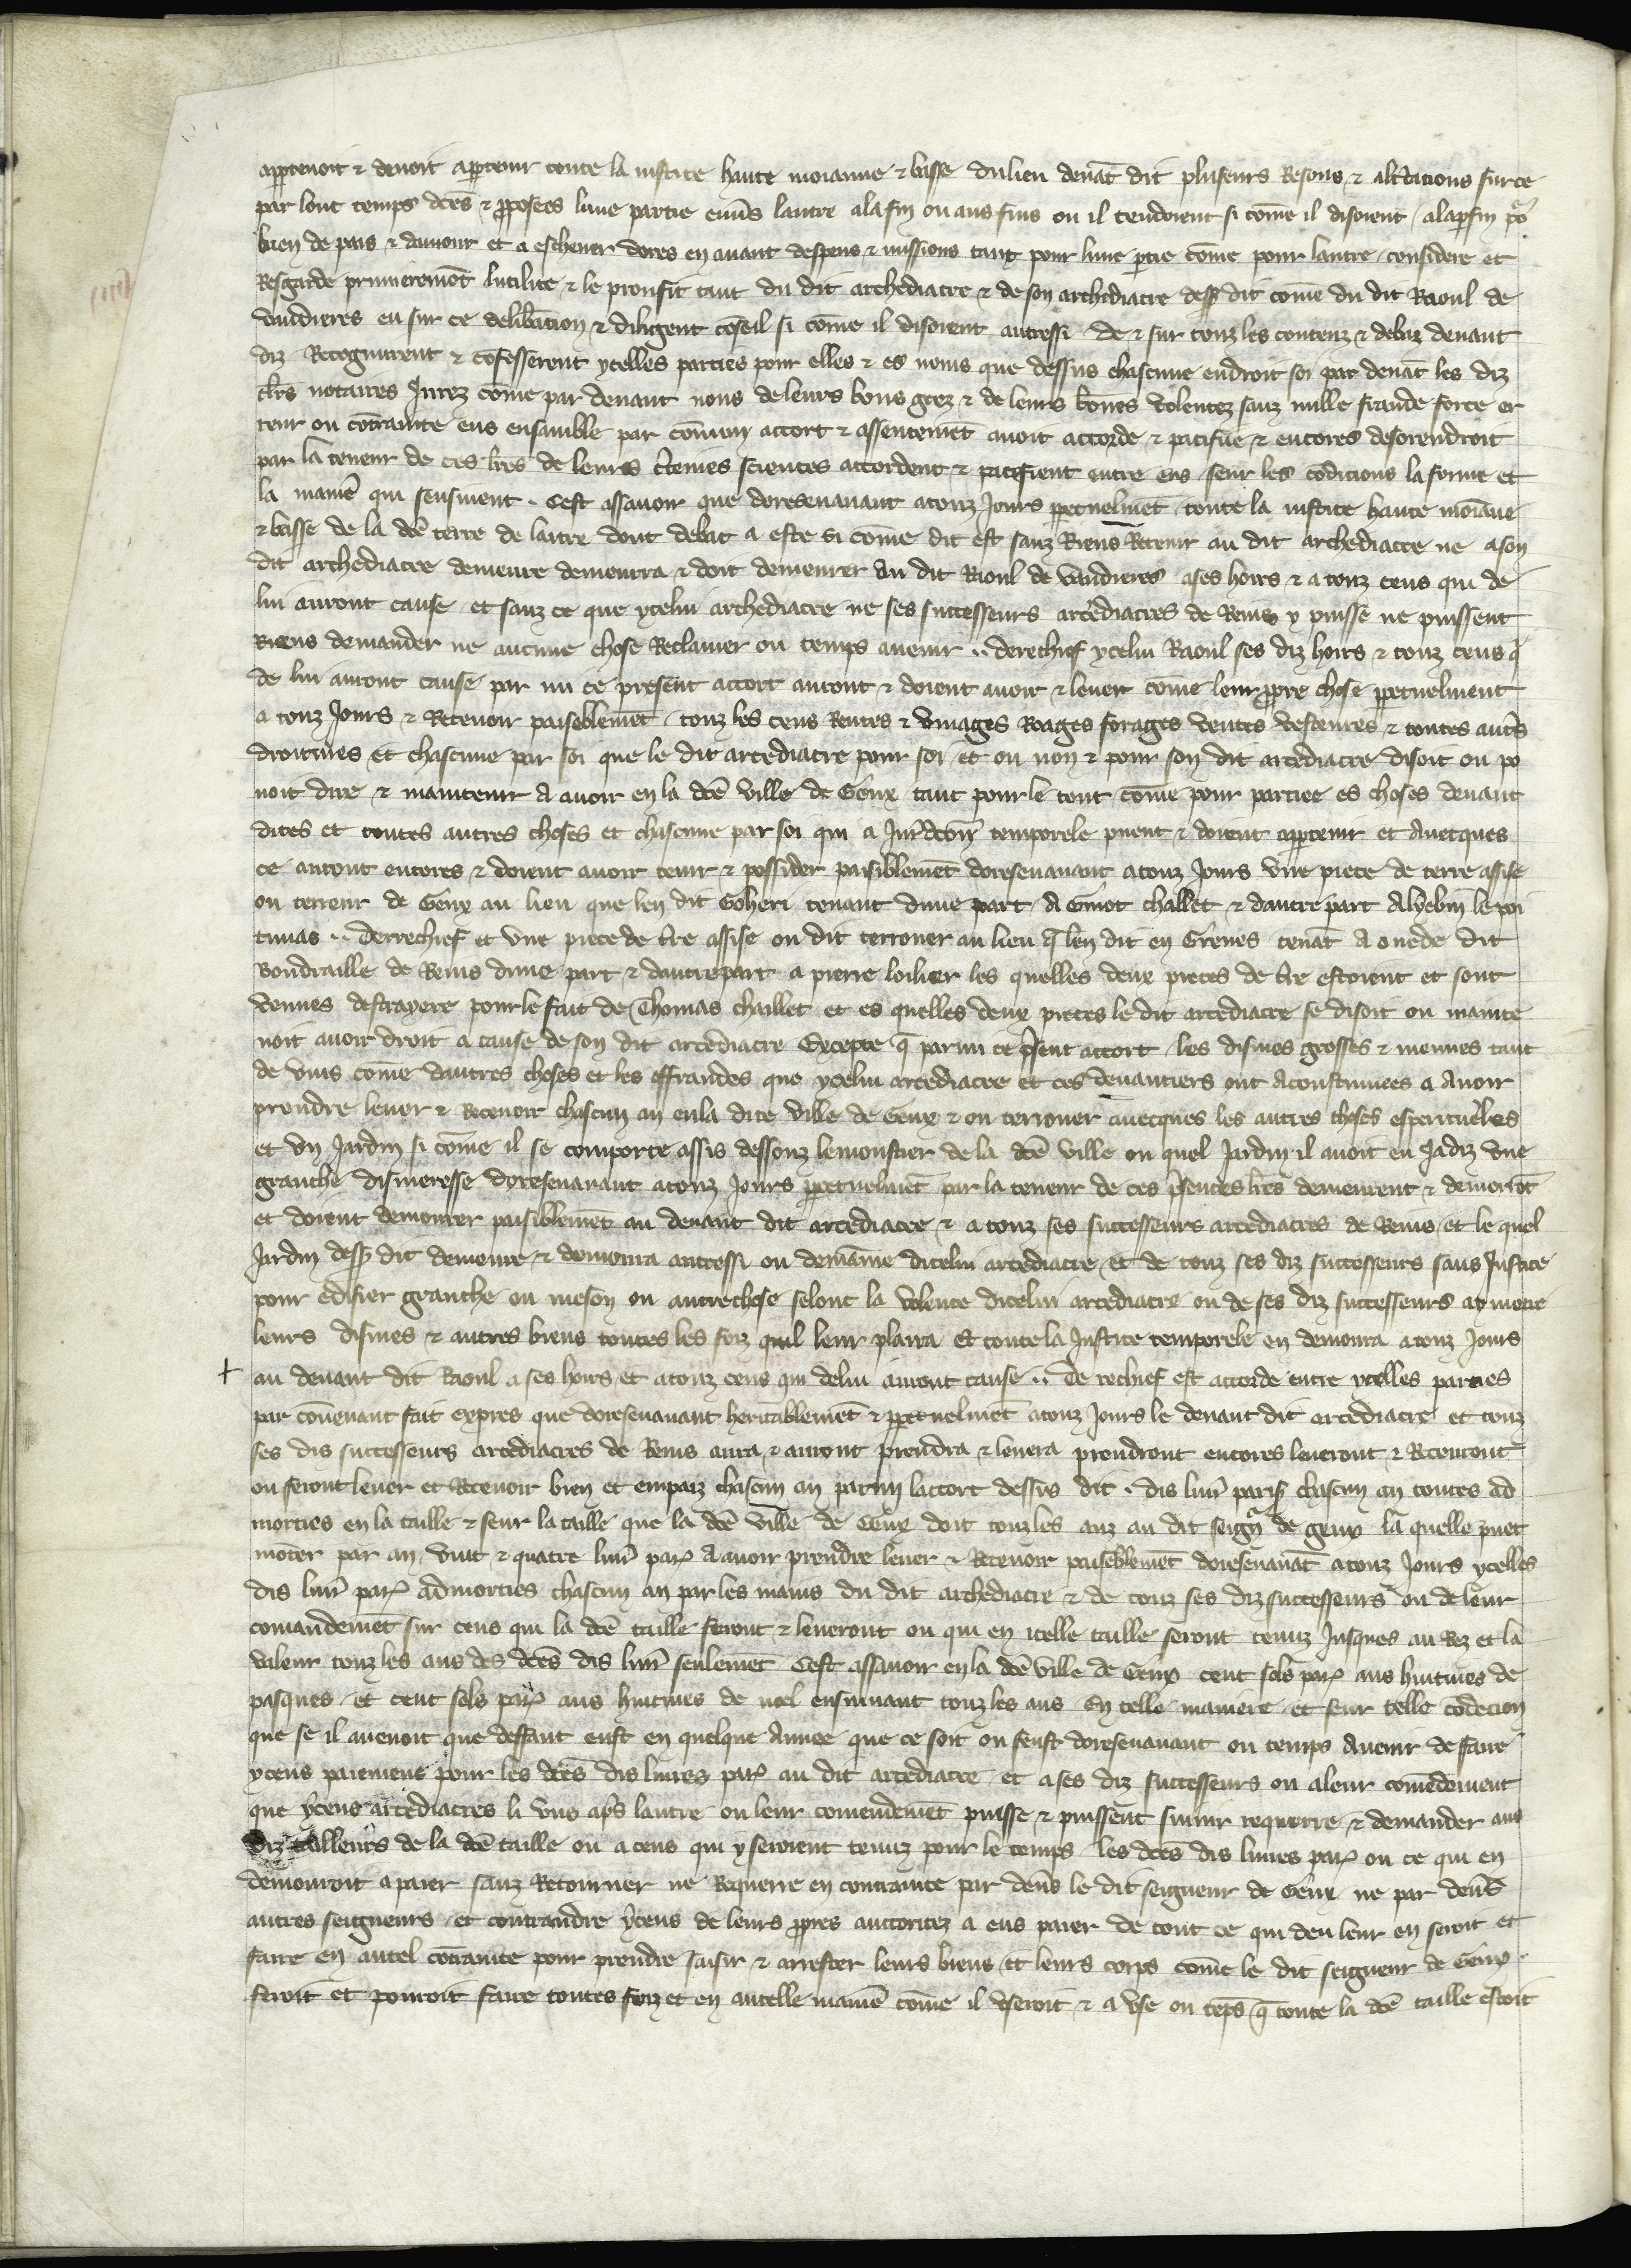 appartenoit & devoit appartenir toute la justice haute moianne & basse du lieu devāt dit plusieurs Resons & altcacions sur ce
par lonc temps dc̄es & ꝓposees lune partie env̄s lautre a la fin ou aus fins ou il tendoient si cōme il disoient / a la parfin po͛
bien de pais & damour et a eschever dores en avant despens & missions tant pour lune ꝑtie cōme pour lautre / considere et
Resgarde premieremēt lutilite & le proufit tant du dit archediacre & de son archediacre dess͛ dit cōme du dit Raoul de
vandieres eu sur ce deliƀacion & diligent cōseil si cōme il disoient autressi / de & sur touz les contenz & debaz devant
diz Recognurent & cōfesserent ycelles parties pour elles & es noms que dessus chascune endroit soi par devāt les diz
clers notaires Jurez cōme par devant nous de leurs bons grez & de leurs bōnes volentez sanz nulle fraude force er
reur ou cōtrainte eus ensamble par cōmun accort & assentemēt avoit accorde & pacifie & encores desorendroit
par la teneur de ces lr̄es de leurs c̄teines sciences accordent & pacefient entre eus / seur les cōdicions la forme et
la manr̄e qui sensuivent . Cest assavoir que doresenavant a touz Jours ꝑpetuelmēt toute la justice haute moiāne
& basse de la dc̄e terre de laitre dont debat a este si cōme dit est sanz Riens Retenir au dit archediacre ne a son
dit archediacre demeure demourra & doit demeurer au dit Raoul de vandieres a ses hoirs & a touz ceus qui de
lui auront cause / et sanz ce que ycelui archediacre ne ses successeurs arcediacres de Reins y puisse ne puissent
Riens demander ne aucune chose Reclamer ou temps avenir .. derechief ycelui Raoul ses diz hoirs & touz ceus q̄
de lui auront cause par mi ce present accort auront & doient avoir & lever cōme leur ꝓpre chose ꝑpetuelment
a touz Jours & Recevoir paiseblemēt / touz les cens Rentes & vinages Roages forages ventes vesteures & toutes aut̄s
droitures et chascune par soi que le dit arcediacre pour soi / et ou non & pour son dit arcediacre disoit ou po
voit dire & maintenir a avoir en la dc̄e ville de Geux tant pour le tout cōme pour partiee es choses devant
dites et toutes autres choses et chascune par soi qui a Jurd̄con̄ temporele puent & doient appartenir et avecques
ce auront encores & doient avoir tenir & possider paisiblemēt doresenavant a touz Jours une piece de terre assise
ou terreur de Geux au lieu que len dit Goheri tenant dune part A Guiot challet & dautre part A hebin le poi
tuvas .. derrechief et une piece de t̄re assise ou dit terroner au lieu q̄ len dit en Grenes tenāt A ouede dit
Bondraille de Reins dune part & dautre part a pierre loihier les quelles deux pieces de t̄re estoient et sont
venues destrayere pour le fait de Thomas chaillet et es quelles deux pieces le dit arcediacre se disoit ou mainte
noit avoir droit a cause de son dit arcediacre Excepte q̄ parmi ce p̄sent accort les dismes grosses & menues tant
de vins cōme dautres choses et les offrandes que ycelui arcediacre et ces devantiers ont Acoustumees a Avoir
prendre lever & Recevoir chascun an en la dite ville de Geux & ou terroner avecques les autres choses esperituelles
et un Jardin si cōme il se comporte assis dessouz le moustier de la dc̄e ville ou quel Jardin il avoit eu Jadiz une
granche dismeresse doresenavant a touz Jours ꝑpetuelmēt par la teneur de ces p̄sentes lr̄es demeurent & demorrōt
et doient demourer paisiblemēt au devant dit arcediacre & a touz ses successeurs arcediacres de Reins / et le quel
Jardin dess͛ dit demoure & demoura autressi ou demāine dicelui arcediacre / et de touz ses diz successeurs sans Justice
pour edifier granche ou meson ou autre chose selonc la volente dicelui arcediacre ou de ses diz successeurs a y metre
leurs dismes & autres biens toutes les foiz quil leur plaira Et toute la Justice temporele en demoura a touz Jours
+ au devant dit Raoul a ses hoirs et a touz ceus qui de lui auront cause .. De rechief est accorde entre ycelles parties
par cōvenant fait expres que doresenavant heritablemēt & ꝑpetuelmēt a touz Jours le devant dit arcediacre et touz
ses dis successeurs arcediacres de Reins aura & auront prendra & levera prendront encores leveront & Recevront
ou feront lever et Recevoir bien et em paiz chascun an parmi laccort dessus dit . dis livr̄ paris̄ chascun an toutes ad
morties en la taille & seur la taille que la dc̄e ville de Geux doit touz les anz au dit seign̄r de geux la quelle puet
mōter par an vint & quatre livr̄ par̄ A avoir prendre lever & Recevoir paiseblemēt doresenavāt a touz Jours ycelles
dis livr̄ par̄ admorties chascun an par les mains du dit archediacre & de touz ses diz successeurs ou de leur
comandemēt sur ceus qui la dc̄e taille feront & leveront ou qui en icelle taille seront tenuz Jusques au Rez et la
valeur touz les ans des dc̄es dis livr̄ seulemēt Cest assavoir en la dc̄e ville de Geux cent sols par̄ aus huitives de
pasques / et cent sols par̄ aus huitives de noel ensuivant touz les ans / En telle maniere et seur telle cōdecion
que se il avenoit que deffaut eust en quelque Annee que ce soit ou feust doresenavant ou temps Avenir de faire
yceus paiemens pour les dc̄es dis livres par̄ au dit arcediacre et a ses diz successeurs ou a leur comēdement
que yceus arcediacres li uns ap̄s lautre ou leur comendemēt puisse & puissent suivir requerre & demander aus
diz tailleurs de la dc̄e taille ou a ceus qui y seroient tenuz pour le temps / les dc̄es dis livres par̄ ou ce qui en
demourroit a paier sanz Retourner ne Requerre en contrainte par dev̄s le dit seigneur de Geux ne par dev̄s
autres seigneurs / et contraindre yceus de leurs ꝓpres auctoritez a eus paier de tout ce qui deu leur en seroit et
faire en autel cōtrainte pour prendre saisir & arrester leurs biens et leurs corps cōme le dit seigneur de Geux
feroit et pourroit faire toutes foiz et en autelle manr̄e cōme il useroit & a use ou tēps q̄ toute la dc̄e taille estoit